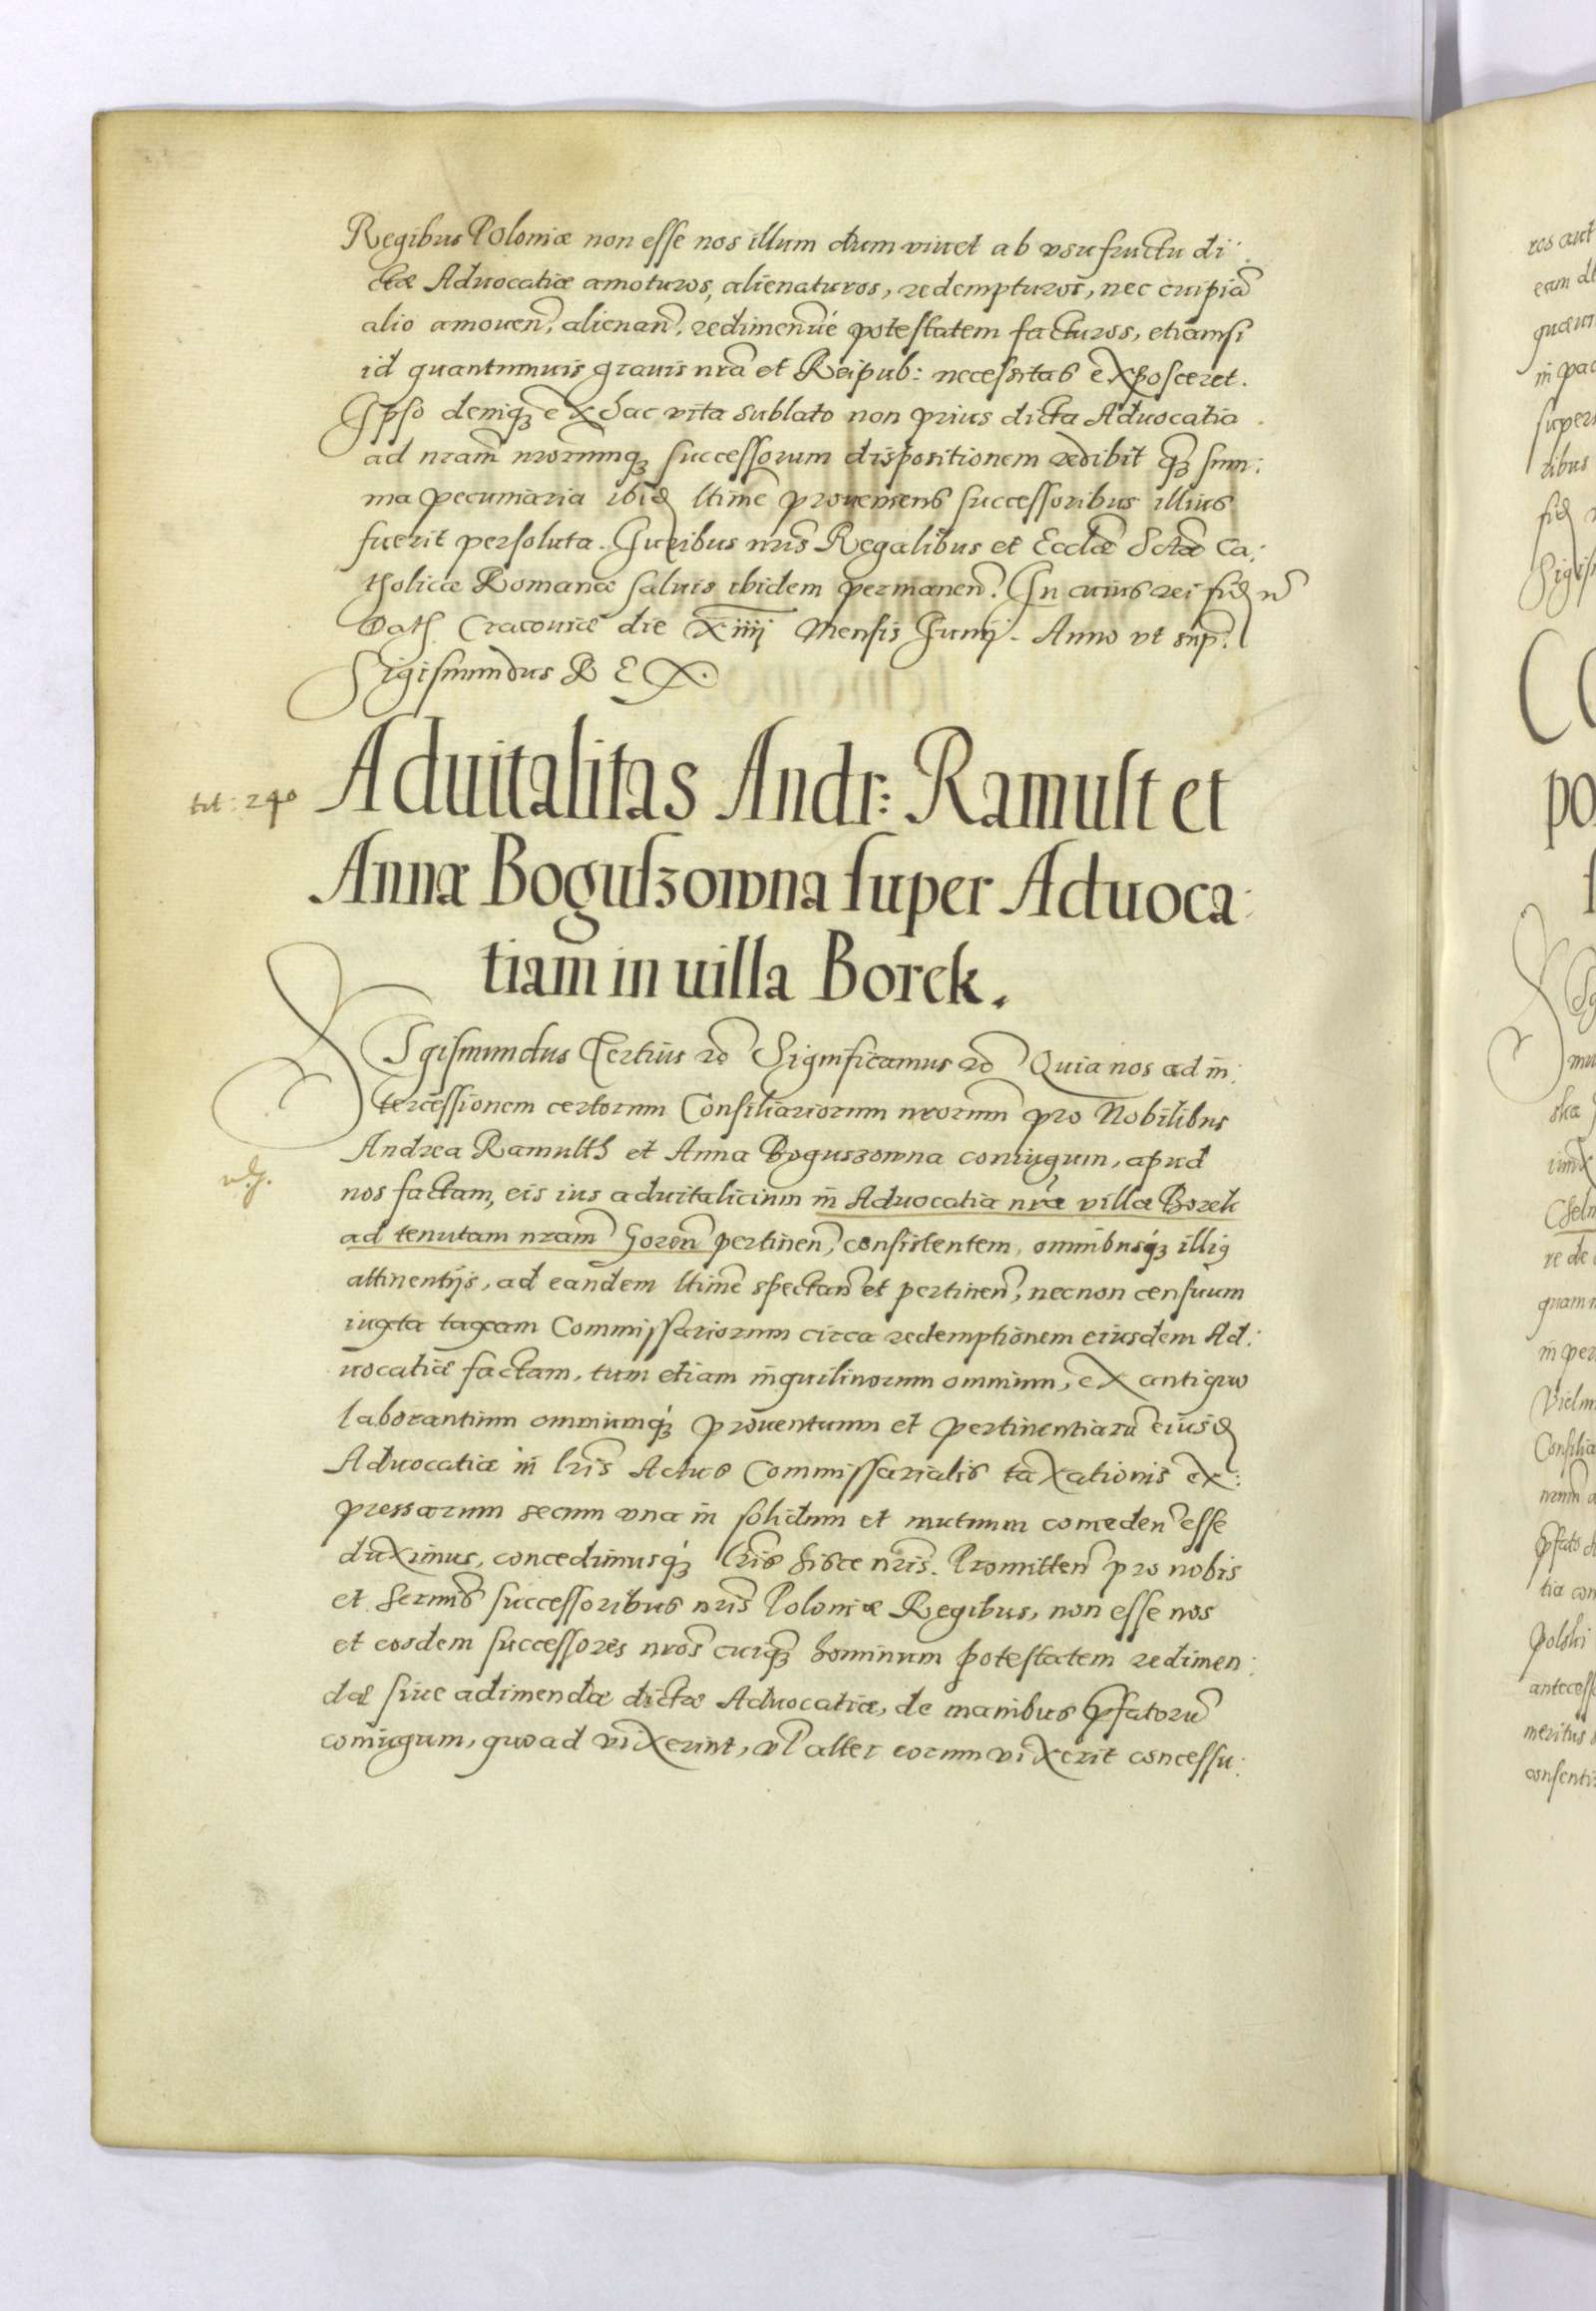 Regibus Poloniæ non esse nos illum dum viuet ab vsufructu di:
ctæ Aduocatiæ amoturos, alienaturos, redempturos, nec cuipiã
alio amouen̄, alienan̄, redimenúé potestatem facturos, etiamsi
id quantumuis grauis nrã et Reipub: necessitas exposceret.
Ipso deniqꝫ ex hac vita sublato non prius dicta Aduocatia
ad nram̃ nrorumqꝫ successorum dispositionem redibit qꝫ sum:
ma pecuniaria ibid ltime proueniens successoribus illius
fuerit persoluta. Iuribus nris̃ Regalibus et Ecclæ Sctæ Ca:
tholicæ Romanæ saluis ibidem permanen̄. In cuius rei fid n̄
Dath Cracouiæ die Xiiij Mensis Iunij. Anno vt sup̃.
Sigismundus R E X.
tit: 240
Aduitalitas Andr: Ramult et
Annæ Boguszowna super Aduoca:
tiam in uilla Borek.
Sigismundus Tertius &c Significamus &c Quia nos ad in:
tercessionem certorum Consiliariorum nrorum pro Nobilibus
Andrea Ramulth et Anna Boguszowna coniugum, apud
nos factam, eis ius aduitalicium in Aduocatia nrã villæ Borek
ad tenutam nram̃ Goren̄ pertinen̄, consistentem, omnibusqꝫ illiꝰ
attinentijs, ad eandem ltime spectan̄ et pertinen̄, necnon censuum
iuxta taxam Commissariorum circa redemptionem eiusdem Ad:
uocatiæ factam, tum etiam inquilinorum omnium, ex antiquo
laborantium omniumqꝫ prouentuum et pertinentiarũ eiusd
Aduocatiæ in lris̃ Actus Commissarialis taxationis ex:
pressarum secum vna in solidum et mutuum conceden̄ esse
duximus, concedimusqꝫ lris̃ hisce nris̃. Promitten̄ pro nobis
et Sermis̃ successoribus nris̃ Poloniæ Regibus, non esse nos
et eosdem successores nros̃ cuiqꝫ hominum potestatem redimen:
dæ siue adimendæ dictæ Aduocatiæ, de manibus pfatorũ
coniugum, quoad vixerint, vl alter eorum vixerit concessu: